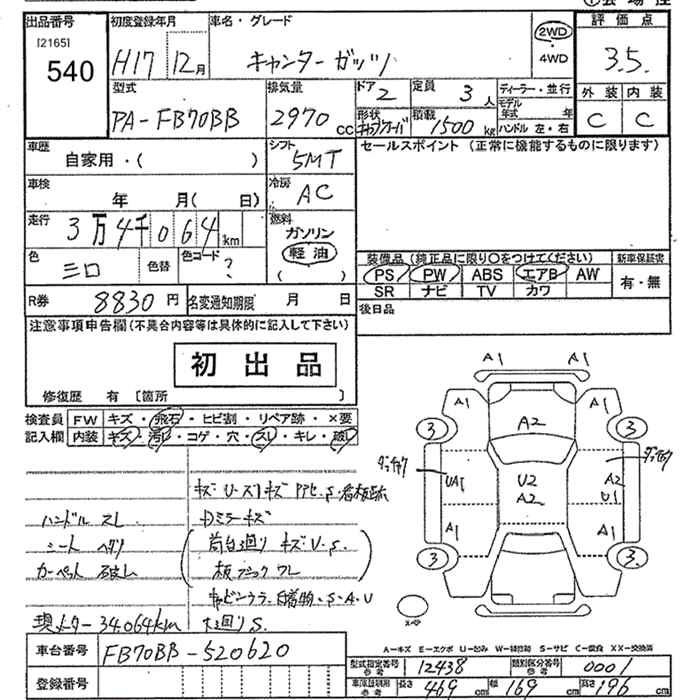 出品番号
[2165]
540
初度登録年月
H17 12月
車名・グレード
キャンターガッツ
2WD
4WD
評価点
3.5
外装 内装
C C
型式
PA-FB70BB
排気量
2970 cc
ドア
2
定員
3人
形状
積載
1500 kg
ディーラー・並行
モデル年式 年
ハンドル 左・右
車歴
自家用・( )
シフト
5MT
セールスポイント(正常に機能するものに限ります)
車検
年 月( 日)
冷房
AC
走行
3万4千064km
燃料
ガソリン
軽油
色
シロ
色替
色コード
?
装備品(純正品に限り○をつけてください)
新車保証書
PS PW ABS エアB AW
SR ナビ TV カワ
有・無
R券 8830円
名変通知期限 月 日
後日品
注意事項申告欄(不具合内容等は具体的に記入して下さい)
初出品
修復歴 有 [箇所 ]
検査員記入欄
FW キズ・飛石・ヒビ割・リペア跡・×要
内装 キズ・汚レ・コゲ・穴・スレ・キレ・破レ
ハンドル スレ
シート ヘタリ
カーペット 破レ
現メーター 34.064km
Dミラーキズ
A1 A1
A1 A1
3 3
A2
UA1
U2
A2
A2
U1
A1 A1
3 3
スペア
A-キズ E-エクボ U-凹ミ W-補修跡 S-サビ C-腐食 XX-交換済
車台番号
FB70BB-520620
登録番号
型式指定番号 参考
12438
類別区分番号 参考
0001
長さ 469cm
幅 169cm
高さ 196cm